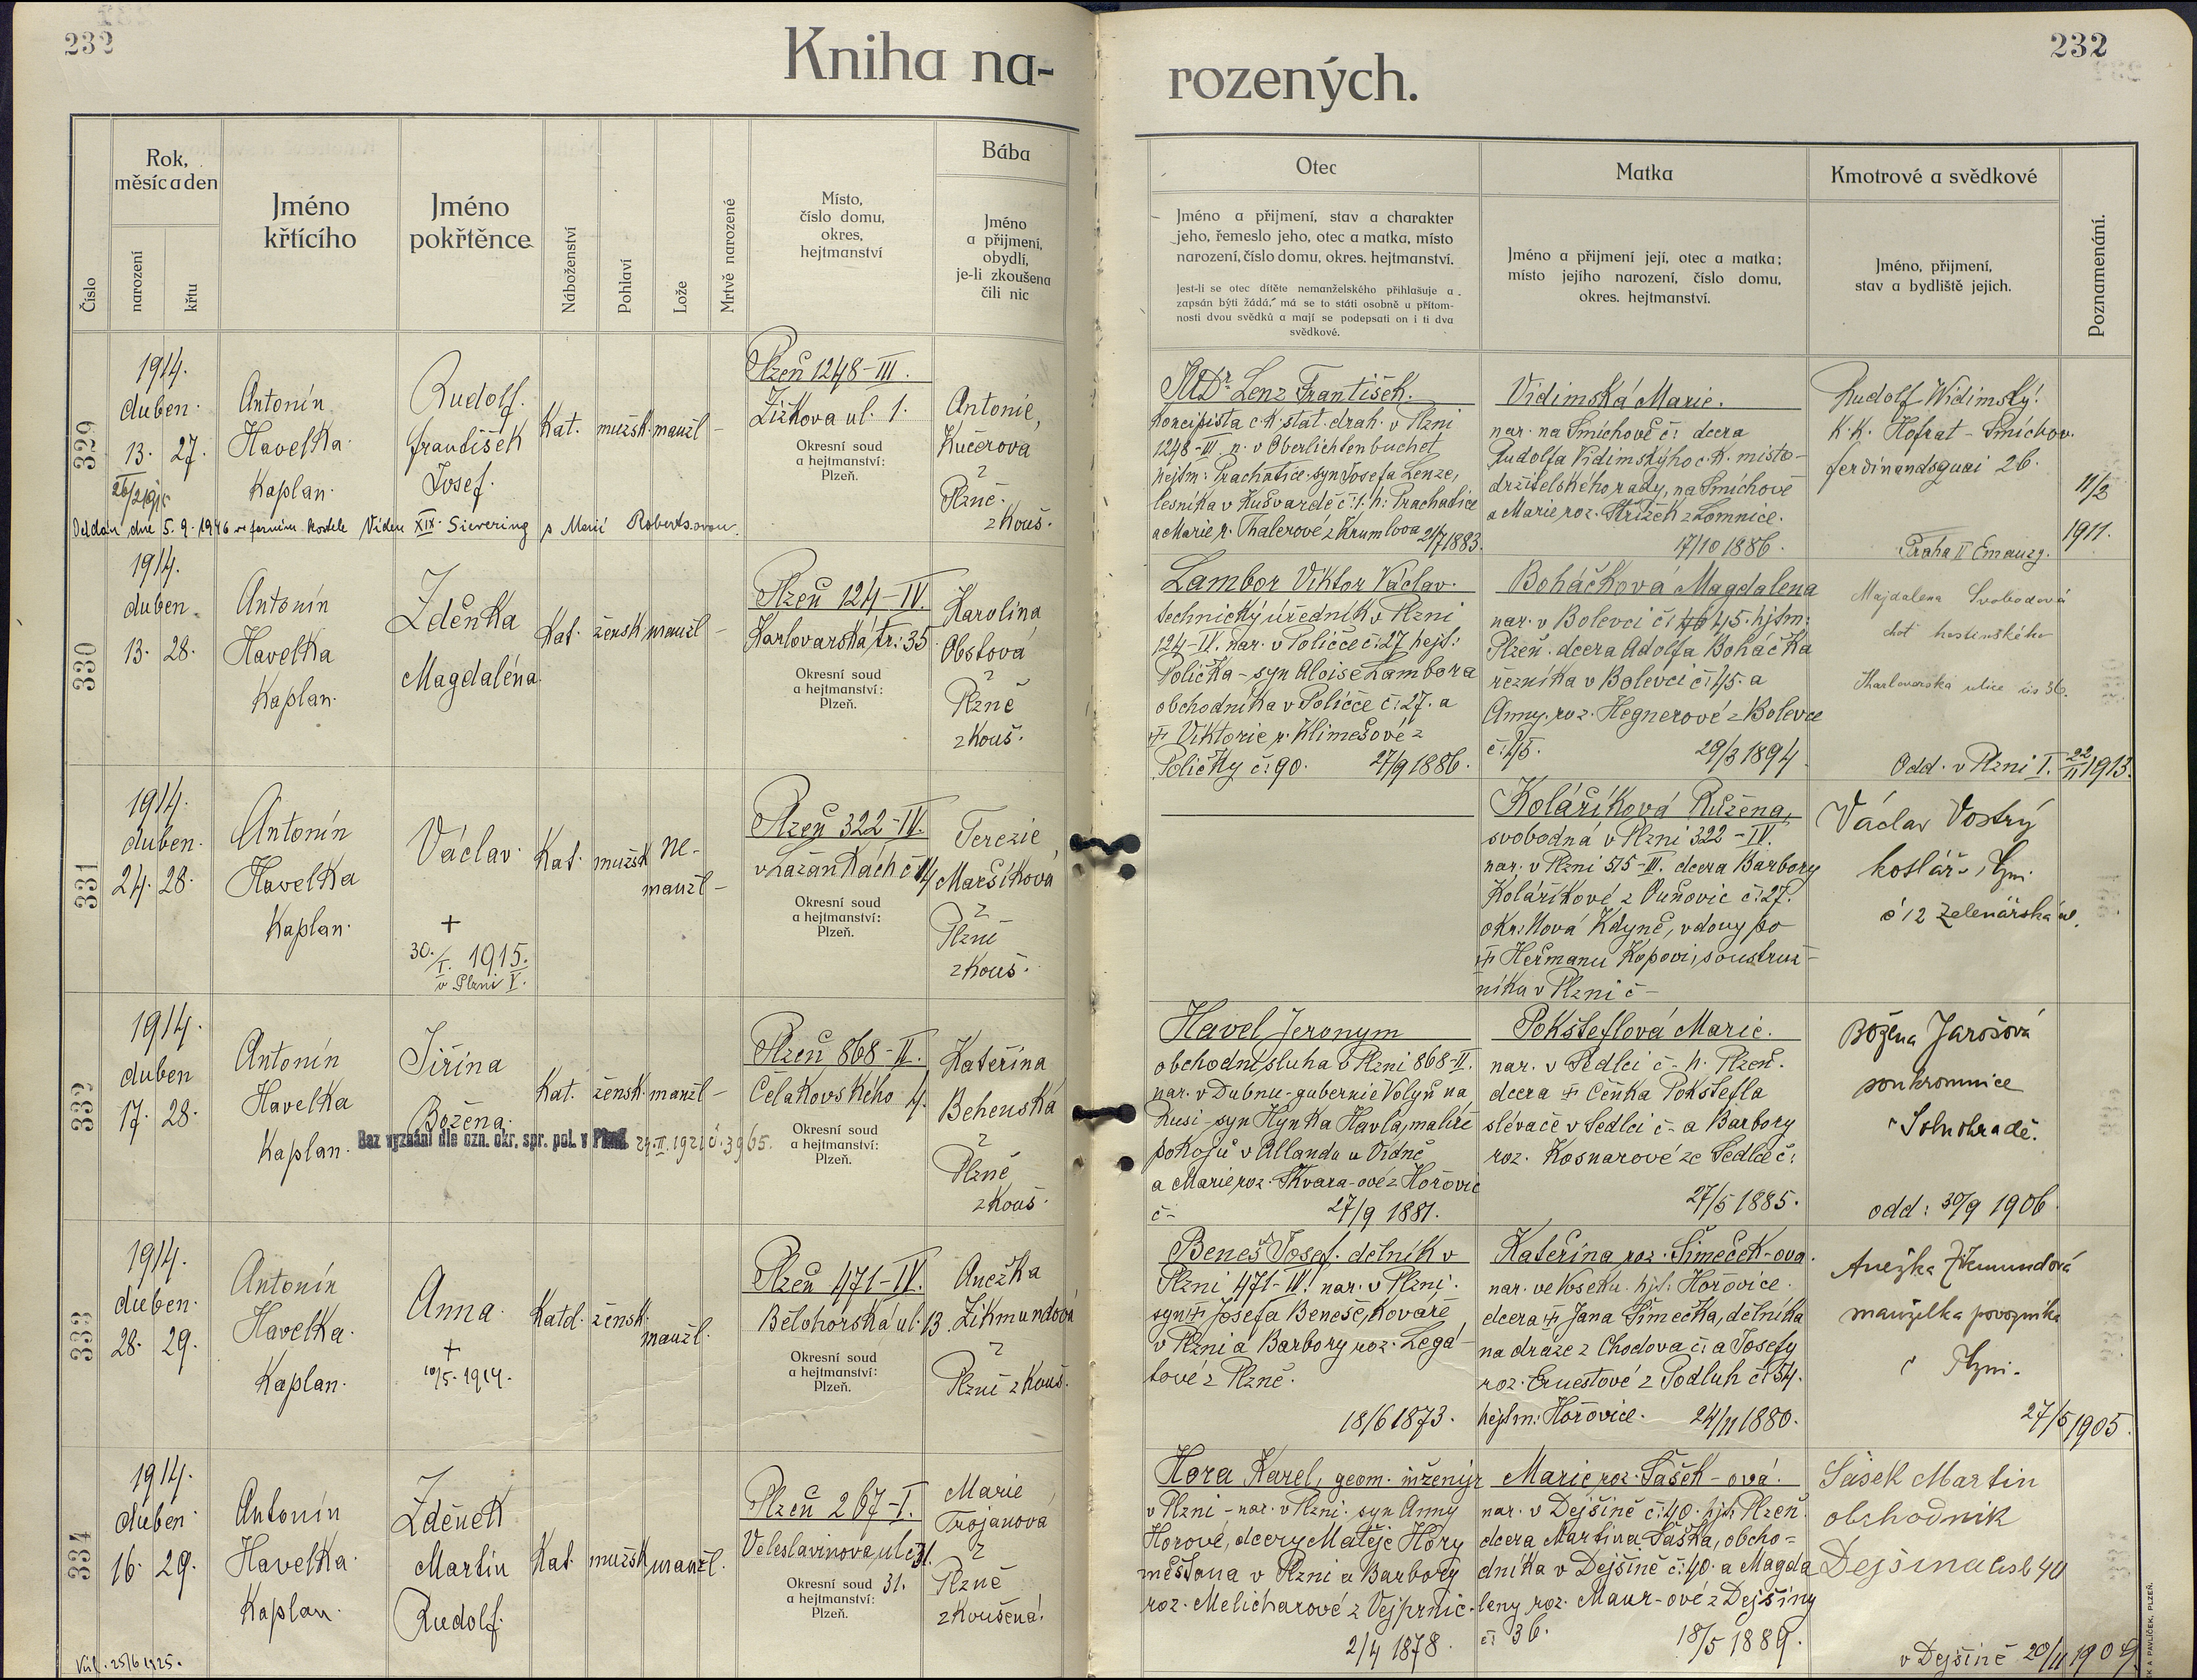 232
232
Kniha na-
rozených.
Číslo
Rok,
měsíc a den
narození
křtu
Jméno
křtícího
Jméno
pokřtěnce
Náboženství
Pohlaví
Lože
Mrtvě narozené
Místo,
číslo domu,
okres,
hejtmanství
Bába
Jméno
a přijmení,
obydlí,
je-li zkoušena
čili nic
Otec
Jméno a přijmení, stav a charakter
jeho, řemeslo jeho, otec a matka, místo
narození, číslo domu, okres. hejtmanství.
Jest-li se otec dítěte nemanželského přihlašuje a
zapsán býti žádá, má se to státi osobně u přítom-
nosti dvou svědků a mají se podepsati on i ti dva
svědkové.
Matka
Jméno a přijmení její, otec a matka;
místo jejího narození, číslo domu,
okres. hejtmanství.
Kmotrové a svědkové
Jméno, přijmení,
stav a bydliště jejich.
Poznamenání.
329
1914.
duben.
13. 27.
Antonín
Havelka
Kaplan.
Rudolf.
františek
Josef.
Kat. mužsk. manžl –
Plzeň 1248–III.
Žižkova ul. 1.
Okresní soud
a hejtmanství:
Plzeň.
Antonie,
Kučerová
z
Plzně.
zkouš.
Oddán dne 5. 9. 1946 ve farním kostele Vídeň XIX. Sievering s Marií Roberts.ovou.
JUDr Lenz František.
Koncipista c.k. stát. drah. v Plzni
1248–III n. v Oberlichtenbuchet
hejtm: Prachatice. syn Josefa Lenze,
lesníka v Kušvardě č: 1. h: Prachatice
a Marie r. Thalerové z Krumlova 21/7 1883.
Vidimská Marie.
nar. na Smíchově č: dcera
Rudolfa Vidimskýho c.k. místo-
držitelského rady, na Smíchově
a Marie roz. Střížek z Lomnice.
17/10 1886.
Rudolf Widimský.
K.K. Hofrat – Smíchov.
ferdinandsquai 26.
11/2
1911.
Praha II Emauzy.
330
1914.
duben.
13. 28.
Antonín
Havelka
Kaplan.
Zdeňka
Magdaléna.
Kat. žensk. manžl –
Plzeň 124–IV.
Karlovarská tr.: 35
Okresní soud
a hejtmanství:
Plzeň.
Karolina
Obstová
z
Plzně
zkouš.
Lambor Viktor Václav.
technický úředník v Plzni
124–IV. nar. v Poličce č: 27 hejt:
Polička – syn Aloise Lambora
obchodníka v Poličce č: 27. a
Viktorie r. Klimešové z
Poličky č: 90. 27/9 1886.
Boháčková Magdalena
nar. v Bolevci č: 45. hjtm:
Plzeň. dcera Adolfa Boháčka
řezníka v Bolevci č: 45. a
Anny. roz. Hegnerové z Bolevce
č: 45. 29/3 1894.
Majdalena Svobodová
choť hostinského
Karlovarská ulice čís 36.
Odd. v Plzni I. 22/11 1913.
331
1914.
duben.
24. 28.
Antonín
Havelka
Kaplan.
Václav.
+
30./I. 1915.
v Plzni V.
Kat. mužsk ne-
manžl –
Plzeň 322–IV.
v Lazárikách č 14
Okresní soud
a hejtmanství:
Plzeň.
Terezie,
Maršíková
z
Plzně
zkouš.
Kolaříková Růžena,
svobodná v Plzni 322–IV.
nar. v Plzni 515–III. dcera Barbory
Kolaříkové z Ouňovic č: 27.
okr: Nová Kdyně, vdovy po
Heřmanu Kopovi, soustruž-
níka v Plzni č –
Václav Vostrý
kotlář v Plzni
č 12 Zelenářská ul.
332
1914.
duben
17. 28.
Antonín
Havelka
Kaplan.
Jiřina
Božena.
Bez vyznání dle ozn. okr. spr. pol. v Plzni 24.II.1921 č. 3965.
Kat. žensk. manžl –
Plzeň 868–II.
Čelakovského 4.
Okresní soud
a hejtmanství:
Plzeň.
Kateřina
Behenská
z
Plzně
zkouš.
Havel Jeronym
obchodní sluha v Plzni 868–II.
nar. v Dubnu – gubernie Volyň na
Rusi – syn Hynka Havla, malíře
pokojů v Allandu u Vídně
a Marie roz. Skvara-ové z Hořovic
č – 27/9 1881.
Pokšteflová Marie.
nar. v Sedlci č – h. Plzeň.
dcera Čeňka Pokštefla
slévače v Sedlci č – a Barbory
roz. Kosnarové ze Sedlce č:
27/5 1885.
Božena Jarošová
soukromnice
odd: 30/9 1906
333
1914.
duben.
28. 29.
Antonín
Havelka.
Kaplan.
Anna.
+
10/5. 1914.
Katol. žensk.
manžl.
Plzeň 471–IV.
Bělohorská ul. 13.
Okresní soud
a hejtmanství:
Plzeň.
Anežka
Zikmundová
z
Plzně zkouš.
Beneš Josef. dělník v
Plzni 471–IV. nar. v Plzni.
syn Josefa Beneše, kováře
v Plzni a Barbory roz. Legá-
tové z Plzně.
18/6 1873.
Kateřina roz. Šimeček-ova.
nar. ve Voseku. hjt. Hořovice.
dcera Jana Šimečka, dělníka
na dráze z Chodova č: a Josefy
roz. Ernestové z Podluh č: 54.
hejtm: Hořovice. 24/11 1880.
Anežka Zikmundová
manželka povozníka
v Plzni.
27/5 1905.
334
1914.
duben.
16. 29.
Antonín
Havelka.
Kaplan.
Zdeněk
Martin
Rudolf.
Kat. mužsk manžl.
Plzeň 267–I.
Veleslavinova ul č 31.
Okresní soud 31.
a hejtmanství:
Plzeň.
Marie
Trojanová
z
Plzně
zkoušená.
Hora Karel, geom. inženýr
v Plzni – nar. v Plzni. syn Anny
Horové, dcery Matěje Hory
měšťana v Plzni a Barbory
roz. Melicharové z Vejprnic.
2/4 1878.
Marie roz. Šašek-ová.
nar. v Dejšině č: 40. hjt. Plzeň.
dcera Martina Šaška, obcho-
dníka v Dejšině č: 40. a Magda
leny roz. Maur-ové z Dejšiny
č: 36. 18/5 1889.
Šašek Martin
obchodník
Dejšina čisl 40
v Dejšině 20/11 1909.